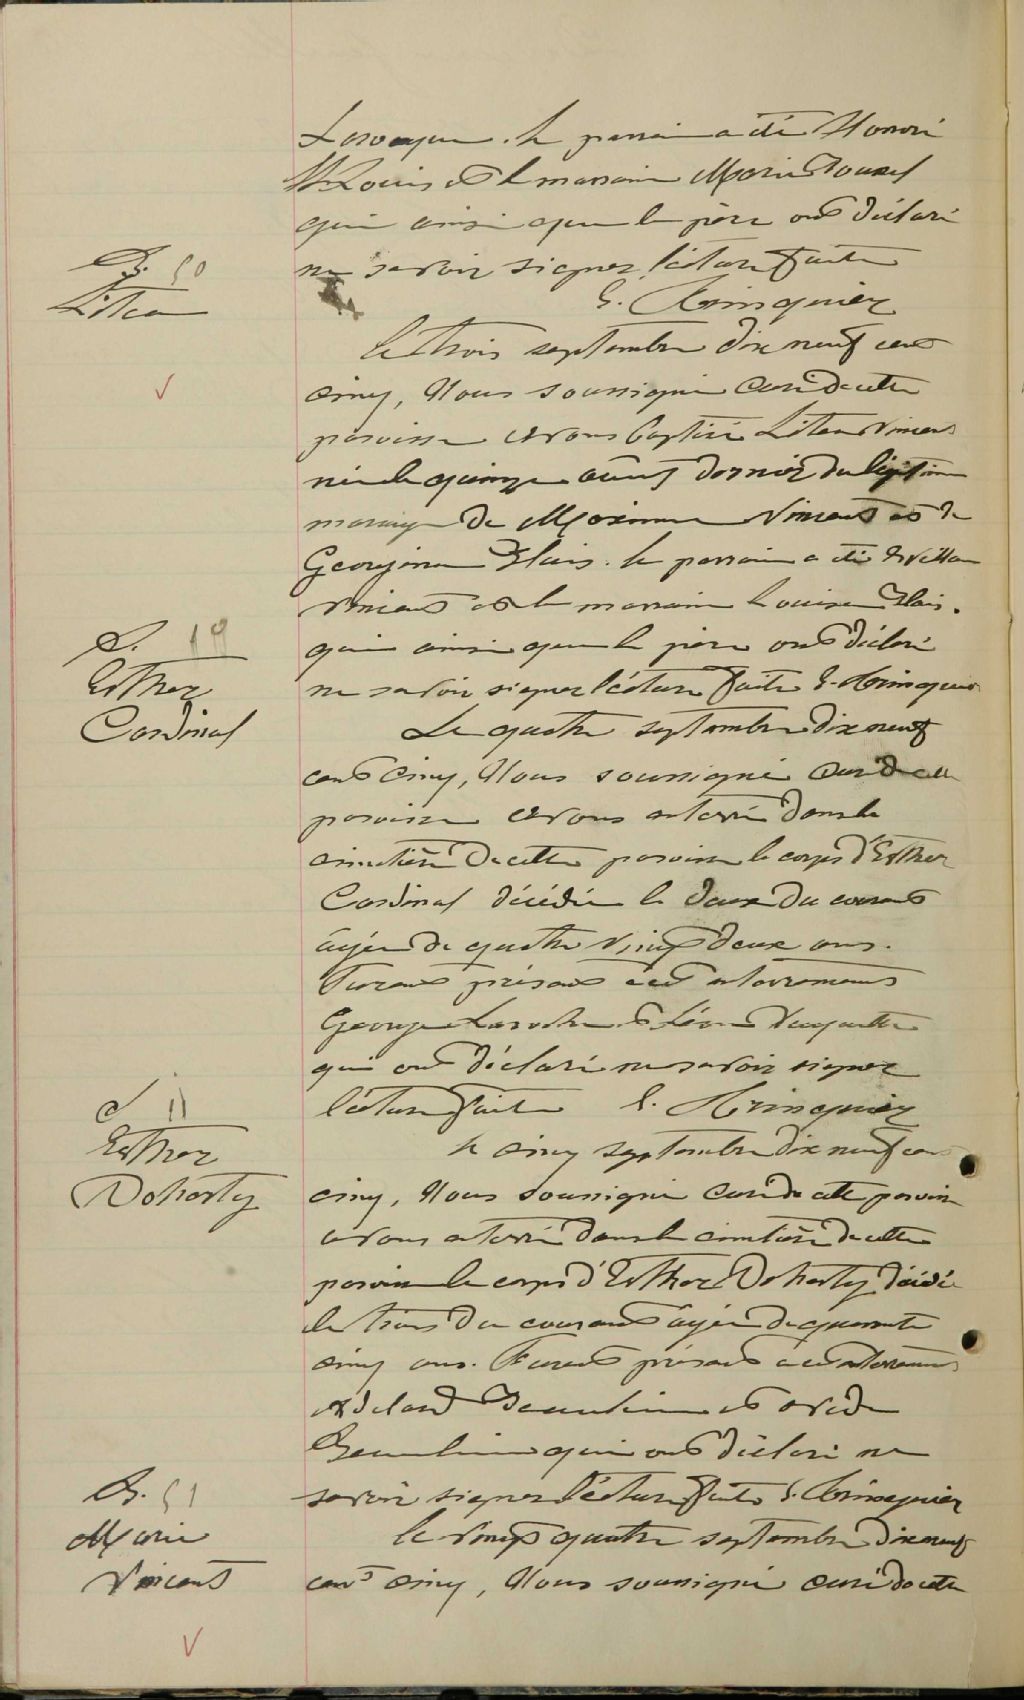 le parrain a été Honoré
St Louis et la marraine Marie
qui ainsi que le père ont déclaré
ne savoir signer lecture faite
B. 50
E.
le trois septembre dix neuf cent
cinq, Nous soussigné curé de cette
paroisse avons baptisé Vincent
né le quinze août dernier du légitime
mariage de Maxime Vincent et de
Georgina Blais. le parrain a été
Vincent et la marraine Louise Blais.
qui ainsi que le père ont déclaré
ne savoir signer lecture faite E.
S. 19
Esther
Cardinal
Le quatre septembre dix neuf
cent cinq, Nous soussigné curé de cette
paroisse avons enterré dans le
cimetière de cette paroisse le corps d'Esther
Cardinal décédée le deux du courant
âgée de quatre vingt deux ans.
Furent présents à cet enterrement
George Laroche et Léon
qui ont déclaré ne savoir signer
lecture faite E.
S 11
Esther
Doherty
le cinq septembre dix neuf cent
cinq, Nous soussigné curé de cette paroisse
avons enterré dans le cimetière de cette
paroisse le corps d'Esther Doherty décédée
le trois du courant âgée de quarante
cinq ans. Furent présents à cet enterrement
Adelard Beaulieu et Ovide
Beaulieu qui ont déclaré ne
savoir signer lecture faite E.
B. 51
Marie
Vincent
le vingt quatre septembre dix neuf
cent cinq, Nous soussigné curé de cette